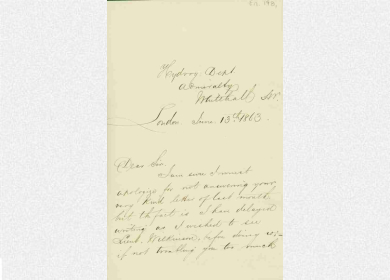 Hydrog. Dept
Admiralty
Whitehall
London June 13th 1863.
Dear Sir
I am sure I must
apologize for not answering your
very kind letter of last month
but the fact is I have delayed
writing as I wished to see
Lieut. Wilkinson, before doing so
not troubling you too much